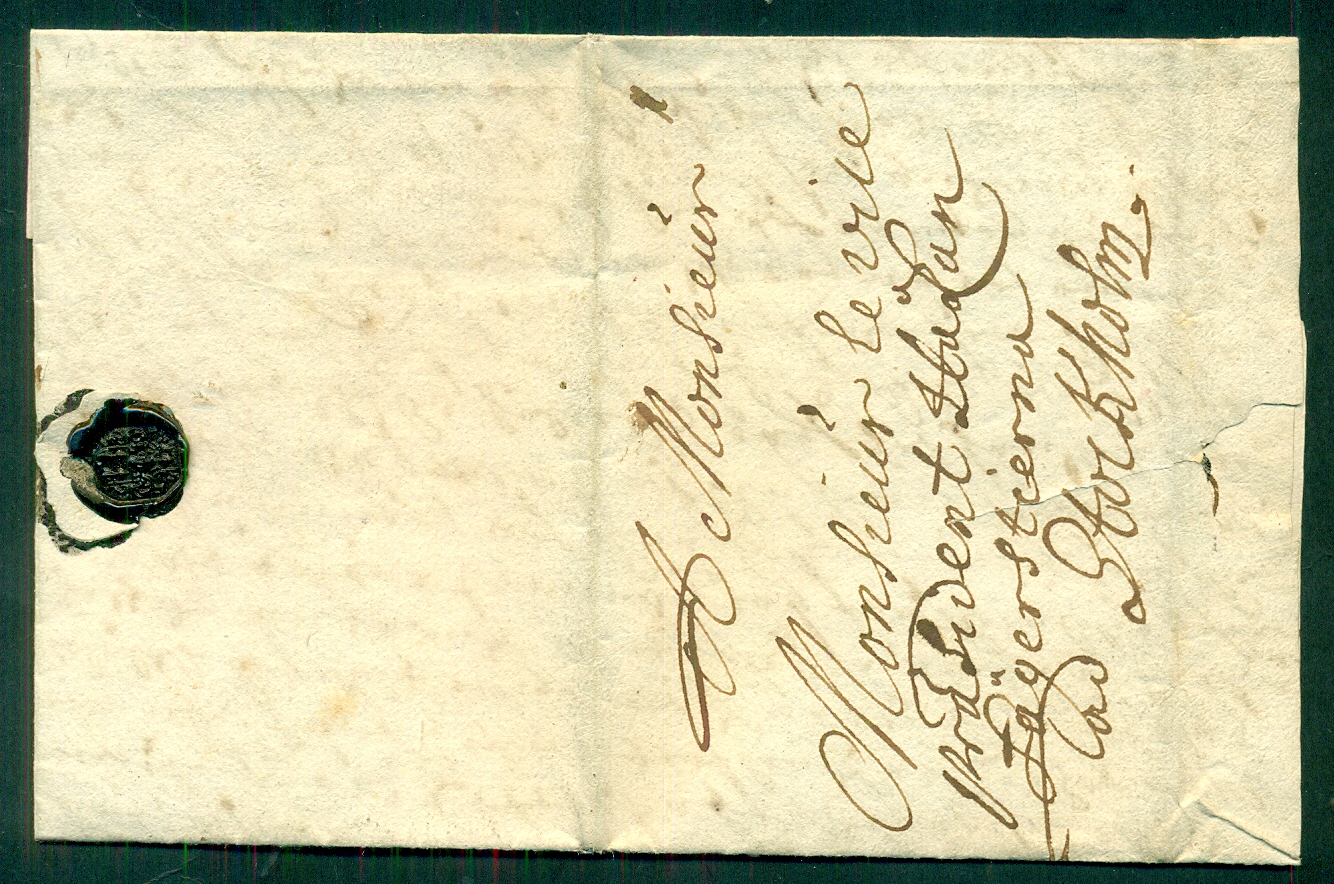 A Monsieur
Monsieur Le Vice
præsident Stadan
Fägerstierna
Stockholm.